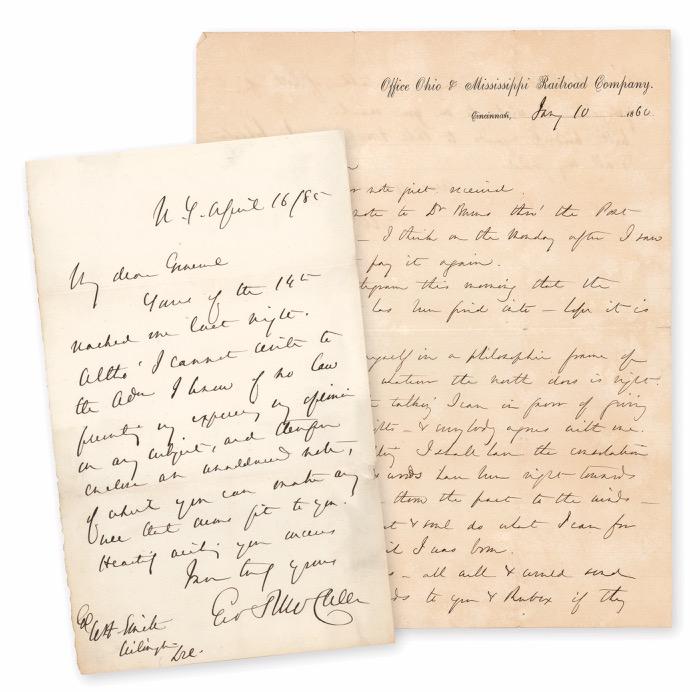 N.Y. April 16/85
My dear General
Yours of the 14th
reached me last night.
Altho' I cannot write to
the Adm I know of no law
preventing my expressing my opinion
on any subject, and therefore
enclose an unaddressed note,
of which you can make any
use that seems fit to you.
Heartily wishing you success
I am truly yours
Geo B McClellan
Wilmington
Del.
Office Ohio & Mississippi Railroad Company.
Cincinnati, Jany 10 1860
note just received.
note to Dr thro' the Post
– I think on the Monday after I saw
pay it again.
this morning that the
has been – hope it is
myself in a philosophic frame of
whatever the north does is right.
talking I can in favor of giving
– & everybody agrees with me.
I shall have the consolation
words have been right towards
them the past to the winds –
& soul do what I can for
I was born.
– all well & would send
to you & if they